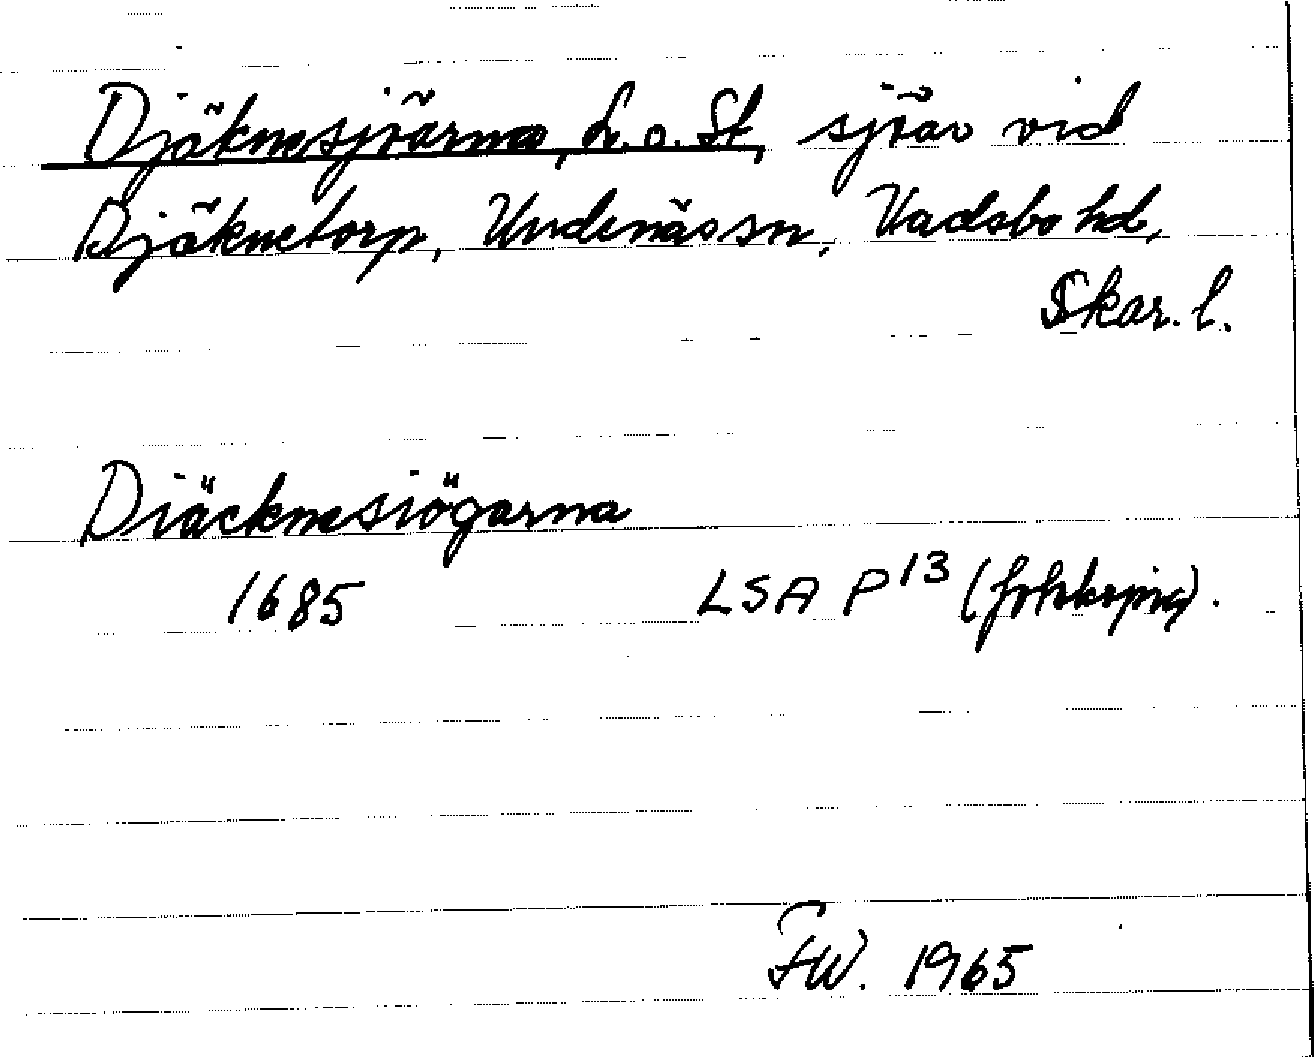 Djäknesjöarna, L. o. St, sjöar vid
Djäknetorp, Undenäs sn, Vadsbo hd,
Skar. l.
Diäcknesiögarna
1685 LSA P 13 (fotokoping).
FW. 1965